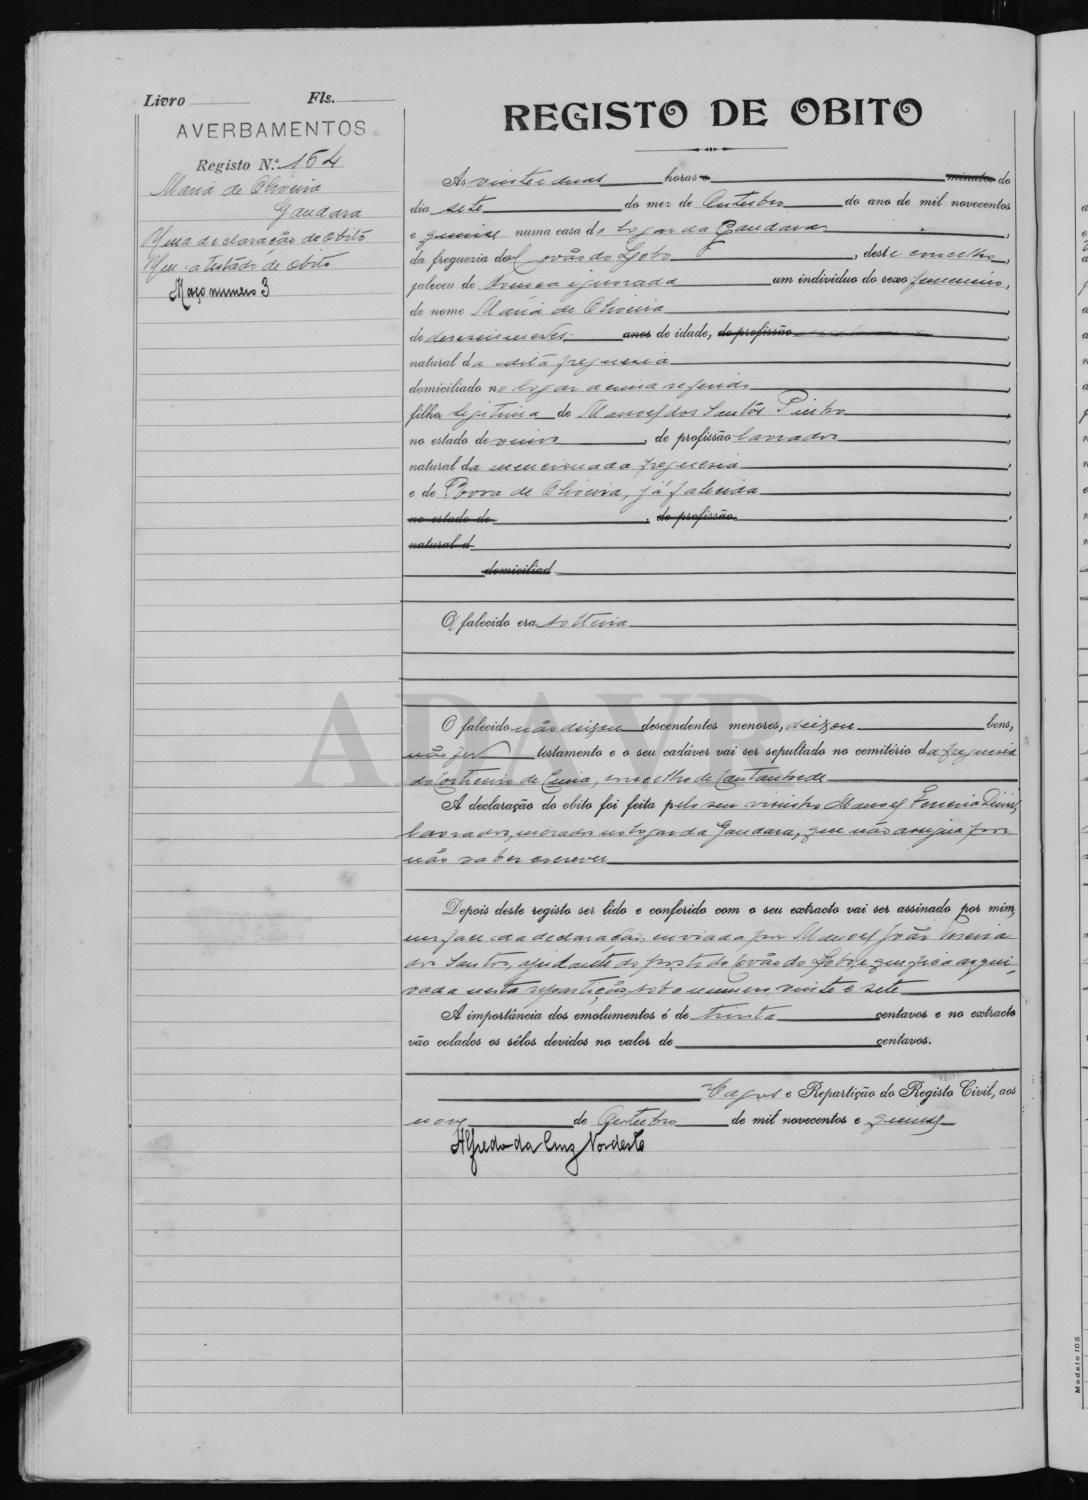 Livro Fls.
AVERBAMENTOS
Registo N.º 164
Maria de Oliveira
Gandara
Uma declaração de obito
Um atestado de obito
Maço numero 3
REGISTO DE OBITO
As vinte e duas horas e minutos do
dia sete do mez de Outubro do ano de mil novecentos
e quinze numa casa do logar da Gandara,
da freguezia de Covão do Lobo, deste concelho,
faleceu de doença ignorada um individuo do sexo femenino,
de nome Maria de Oliveira,
de dezeseis mezes anos de idade, de profissão
natural da dita freguesia,
domiciliado no logar acima referido,
filha legitima de Manoel dos Santos Pintro,
no estado de viuvo, de profissão lavrador,
natural da mencionada freguesia,
e de Rosa de Oliveira, já falecida,
no estado de, de profissão,
natural d,
domiciliad
O falecido era solteira
O falecido não deixou descendentes menores, deixou bens,
não fez testamento e o seu cadáver vai ser sepultado no cemitério da freguesia
do Corticeiro de Cima, concelho de Cantanhede
A declaração do obito foi feita pelo seu visinho Manoel Ferreira Diniz,
lavrador, morador no logar da Gandara, que não assigna por
não saber escrever
Depois deste registo ser lido e conferido com o seu extracto vai ser assinado por mim,
em face da declaração enviada por Manoel João Pereira
dos Santos, ajudante do posto do Covão do Lobo, e que fica arqui-
vada nesta repartição sob o numero vinte e sete
A importância dos emolumentos é de trinta centavos e no extracto
vão colados os sêlos devidos no valor de centavos.
Vagos e Repartição do Registo Civil, aos
nove de Outubro de mil novecentos e quinze
Alfredo da Cruz Nordeste
ADAVR
Modelo 105